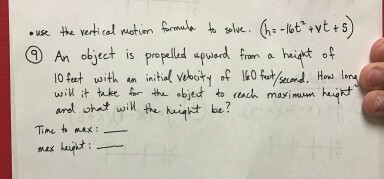 • use the vertical motion formula to solve. (h = -16t² + vt + s)
⑨ An object is propelled upward from a height of
10 feet with an initial velocity of 160 feet/second. How long
will it take for the object to reach maximum height
and what will the height be?
Time to max: ____
max height: ____